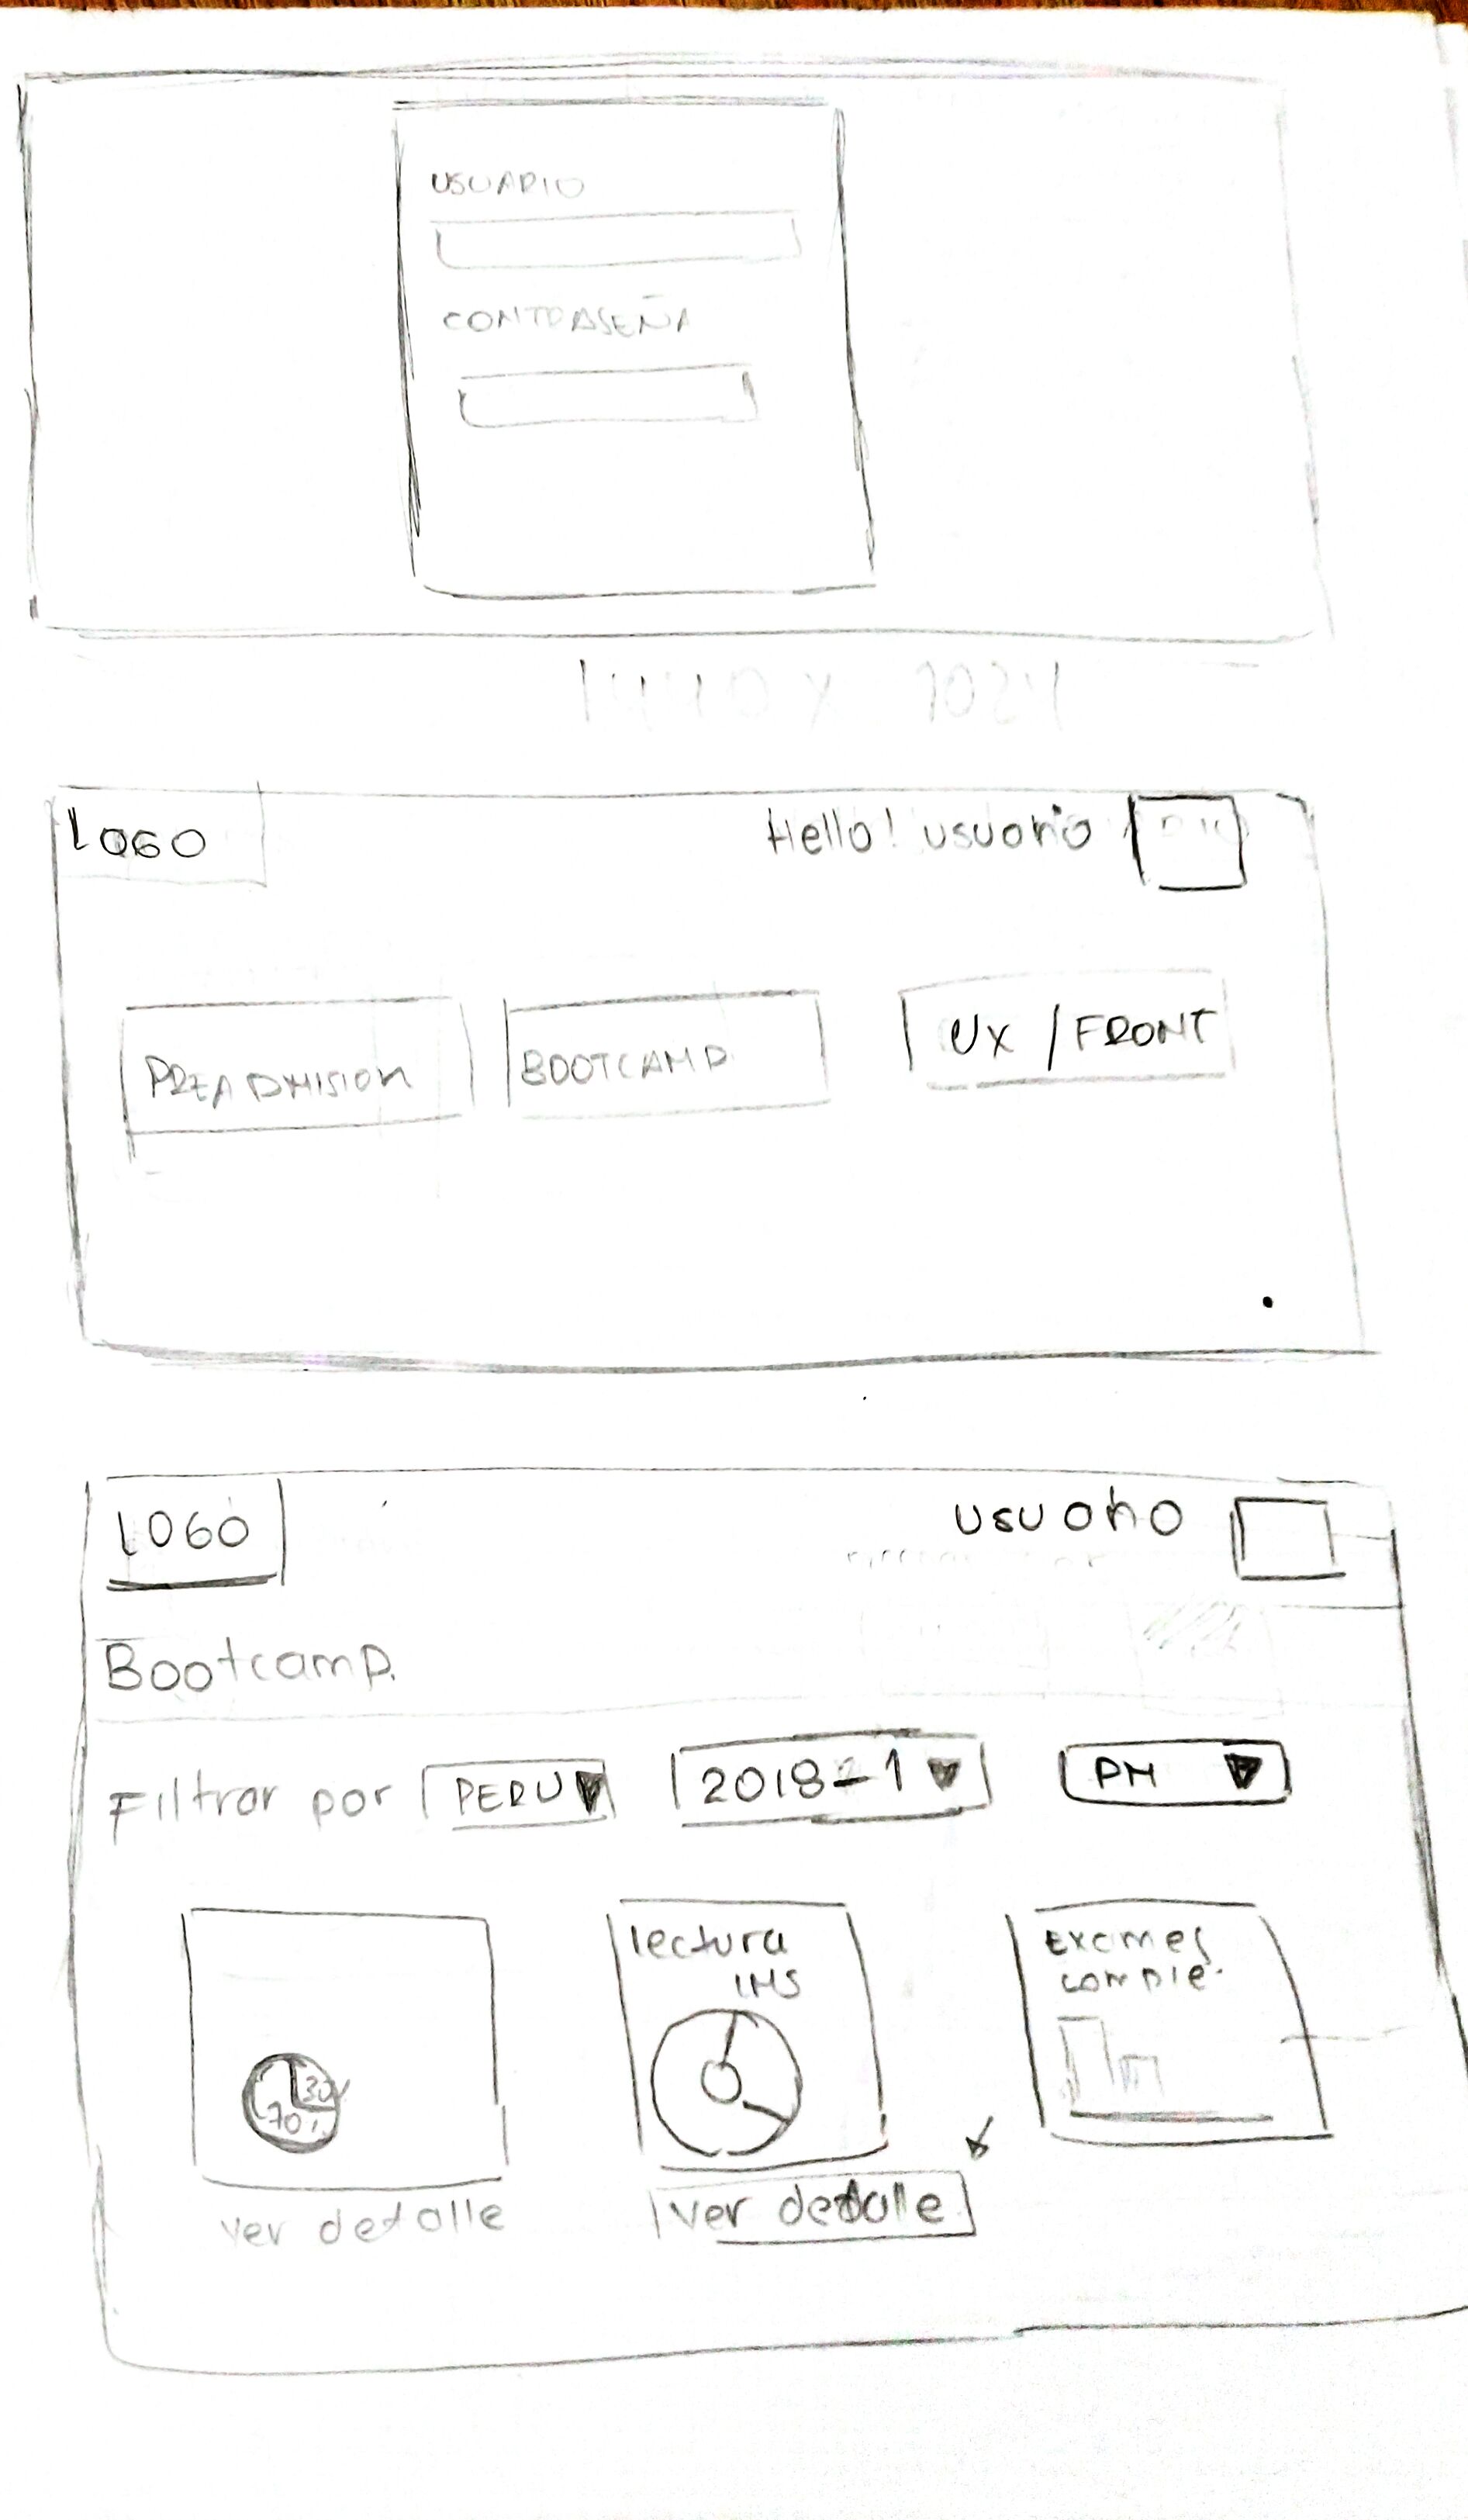 USUARIO
CONTRASEÑA
1440 X 1024
LOGO
Hello! usuario
PREADMISION
BOOTCAMP
UX / FRONT
LOGO
usuario
Bootcamp.
Filtrar por PERU 2018-1 PM
30%
70%
lectura
Exames
comple.
ver detalle
ver detalle